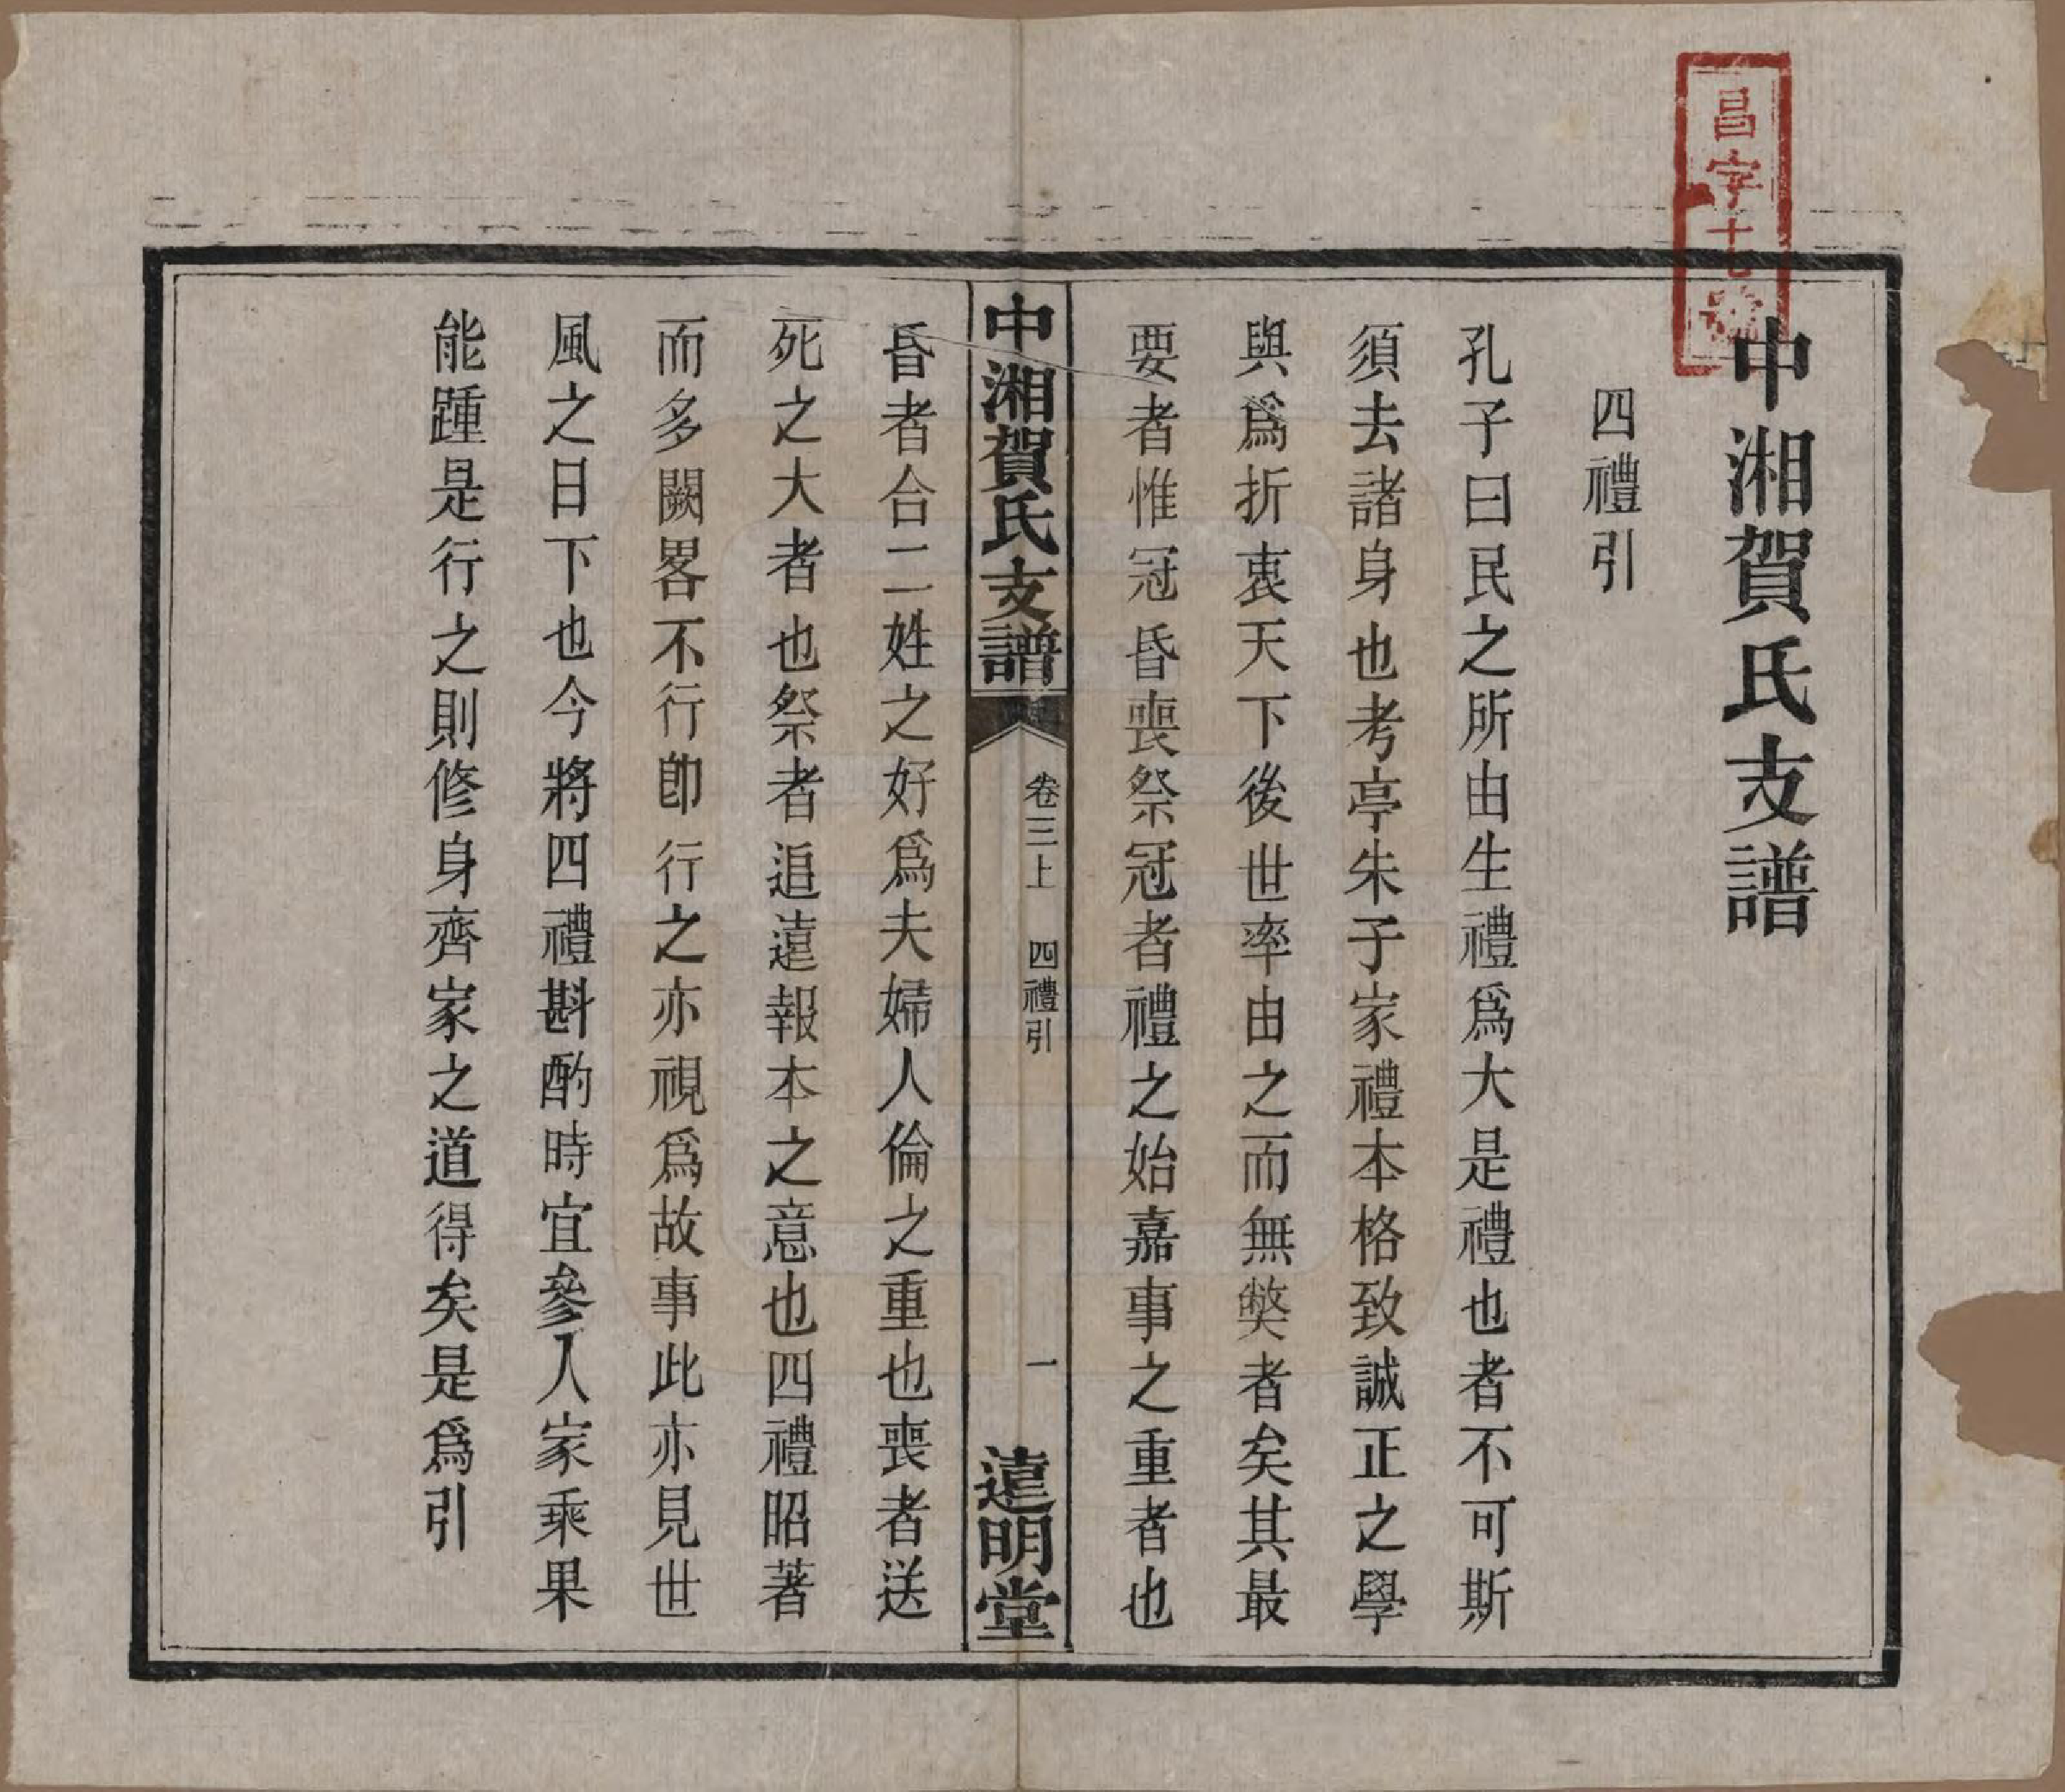 昌字十七號
中湘賀氏支譜
四禮引
孔子曰民之所由生禮爲大是禮也者不可斯
須去諸身也考亭朱子家禮本格致誠正之學
與爲折衷天下後世率由之而無獘者矣其最
要者惟冠昏喪祭冠者禮之始嘉事之重者也
中湘賀氏支譜
卷三上
四禮引
一
遠明堂
昏者合二姓之好爲夫婦人倫之重也喪者送
死之大者也祭者追遠報本之意也四禮昭著
而多闕畧不行卽行之亦視爲故事此亦見世
風之日下也今將四禮斟酌時宜參入家乘果
能踵是行之則修身齊家之道得矣是爲引